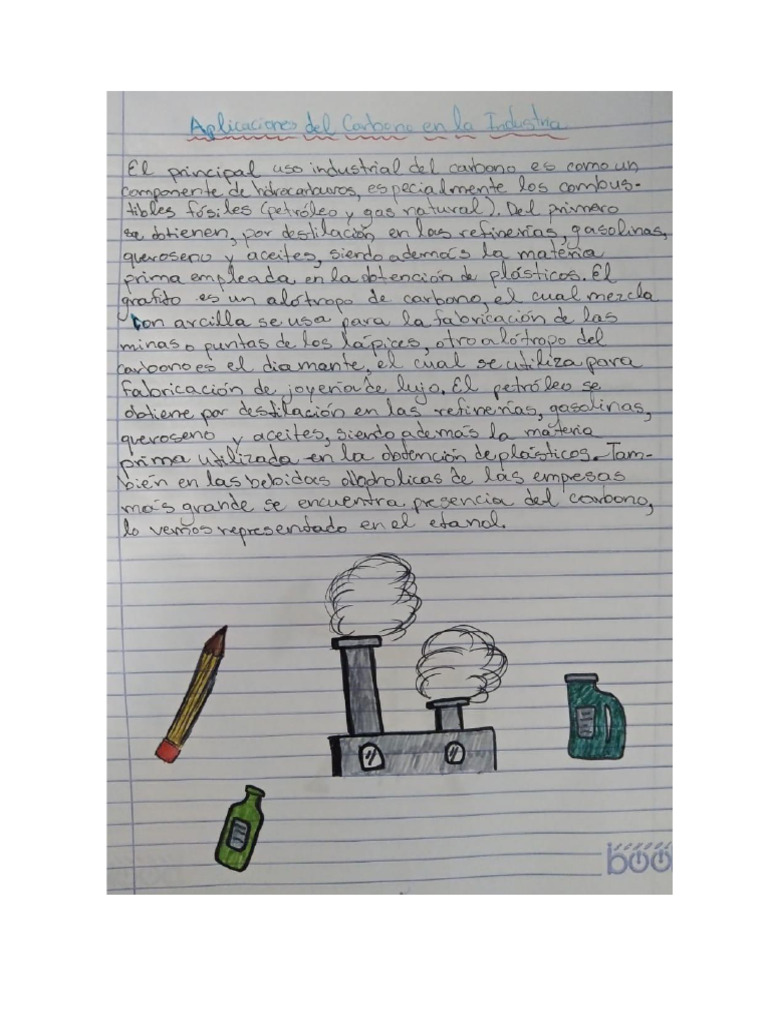 Aplicaciones del Carbono en la Industria
El principal uso industrial del carbono es como un
componente de hidrocarburos, especialmente los combus-
tibles fósiles (petróleo y gas natural). Del primero
se obtienen, por destilación en las refinerías, gasolinas,
queroseno y aceites, siendo además la materia
prima empleada en la obtención de plásticos. El
grafito es un alótropo de carbono, el cual mezcla
con arcilla se usa para la fabricación de las
minas o puntas de los lápices, otro alótropo del
carbono es el diamante, el cual se utiliza para
fabricación de joyería de lujo. El petróleo se
obtiene por destilación en las refinerías, gasolinas,
queroseno y aceites, siendo además la materia
prima utilizada en la obtención de plásticos. Tam-
bién en las bebidas alcoholicas de las empesas
más grande se encuentra presencia del carbono,
lo vemos representado en el etanol.
boo